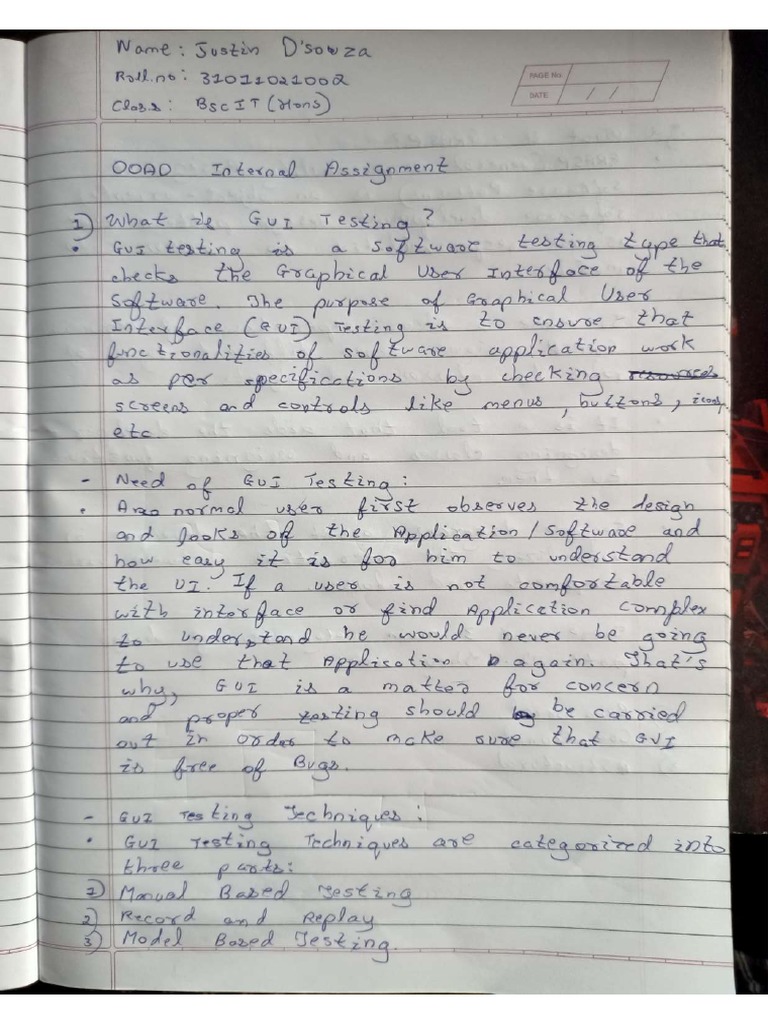 Name: Justin D'souza
Roll.no: 31011021002
Class: BscIT (Hons)
PAGE No.
DATE / /
OOAD Internal Assignment
1) What is GUI Testing?
• GUI testing is a software testing type that
checks the Graphical User Interface of the
Software. The purpose of Graphical User
Interface (GUI) Testing is to ensure that
functionalities of software application work
as per specifications by checking
screens and controls like menus, buttons, icons,
etc.
- Need of GUI Testing:
• A normal user first observes the design
and looks of the Application/Software and
how easy it is for him to understand
the UI. If a user is not comfortable
with interface or find Application complex
to understand he would never be going
to use that Application again. That's
why, GUI is a matter for concern
and proper testing should be carried
out in order to make sure that GUI
is free of Bugs.
- GUI Testing Techniques:
• GUI Testing Techniques are categorized into
three parts:
1) Manual Based Testing
2) Record and Replay
3) Model Based Testing.